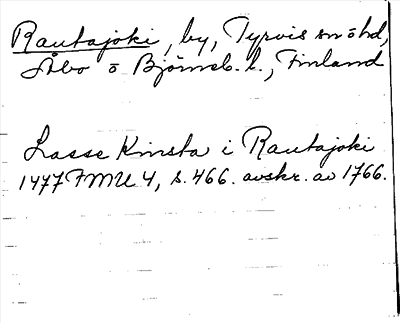 Rautajoki, by, Tyrvis snöhd,
Åbo o Björneb. l., Finland
Lasse Kinsta i Rautajoki
1477 FMU 4, s. 466. avskr. av 1766.